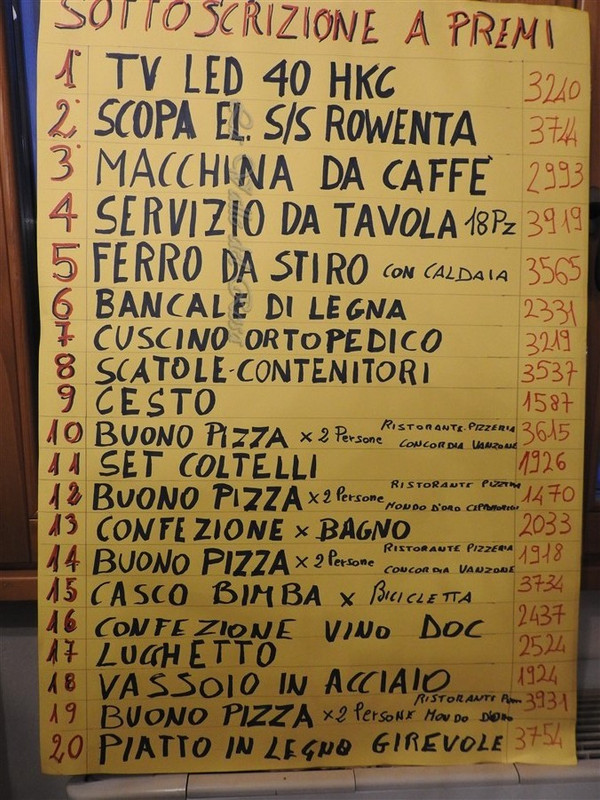 SOTTOSCRIZIONE A PREMI
1° TV LED 40 HKC 3240
2° SCOPA EL. S/S ROWENTA 3744
3° MACCHINA DA CAFFÈ 2993
4 SERVIZIO DA TAVOLA 18Pz 3919
5 FERRO DA STIRO CON CALDAIA 3565
6 BANCALE DI LEGNA 2331
7 CUSCINO ORTOPEDICO 3219
8 SCATOLE-CONTENITORI 3537
9 CESTO 1587
10 BUONO PIZZA x 2 Persone RISTORANTE-PIZZERIA CONCORDIA VANZONE 3615
11 SET COLTELLI 1926
12 BUONO PIZZA x 2 Persone RISTORANTE PIZZERIA MONDO D'ORO 1470
13 CONFEZIONE x BAGNO 2033
14 BUONO PIZZA x 2 Persone RISTORANTE PIZZERIA CONCORDIA VANZONE 1918
15 CASCO BIMBA x BICICLETTA 3734
16 CONFEZIONE VINO DOC 2437
17 LUCCHETTO 2524
18 VASSOIO IN ACCIAIO 1924
19 BUONO PIZZA x 2 PERSONE RISTORANTE MONDO D'ORO 3931
20 PIATTO IN LEGNO GIREVOLE 3754